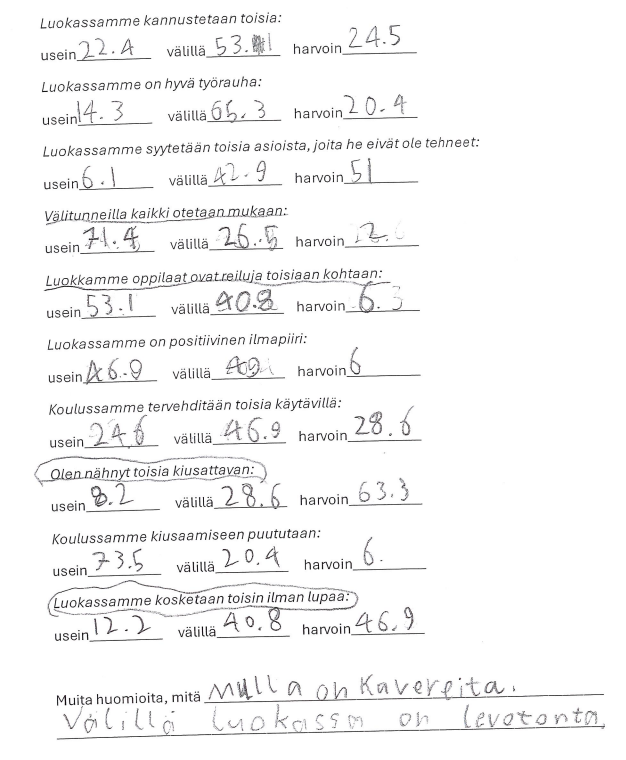 Luokassamme kannustetaan toisia:
usein 22.4 välillä 53.1 harvoin 24.5
Luokassamme on hyvä työrauha:
usein 14.3 välillä 65.3 harvoin 20.4
Luokassamme syytetään toisia asioista, joita he eivät ole tehneet:
usein 6.1 välillä 42.9 harvoin 51
Välitunneilla kaikki otetaan mukaan:
usein 71.4 välillä 26.5 harvoin
Luokkamme oppilaat ovat reiluja toisiaan kohtaan:
usein 53.1 välillä 40.8 harvoin 6.3
Luokassamme on positiivinen ilmapiiri:
usein 46.9 välillä harvoin 6
Koulussamme tervehditään toisia käytävillä:
usein 24.6 välillä 46.9 harvoin 28.6
Olen nähnyt toisia kiusattavan:
usein 8.2 välillä 28.6 harvoin 63.3
Koulussamme kiusaamiseen puututaan:
usein 73.5 välillä 20.4 harvoin 6.
Luokassamme kosketaan toisin ilman lupaa:
usein 12.2 välillä 40.8 harvoin 46.9
Muita huomioita, mitä Mulla on Kavereita.
Välillä luokassa on levotonta.